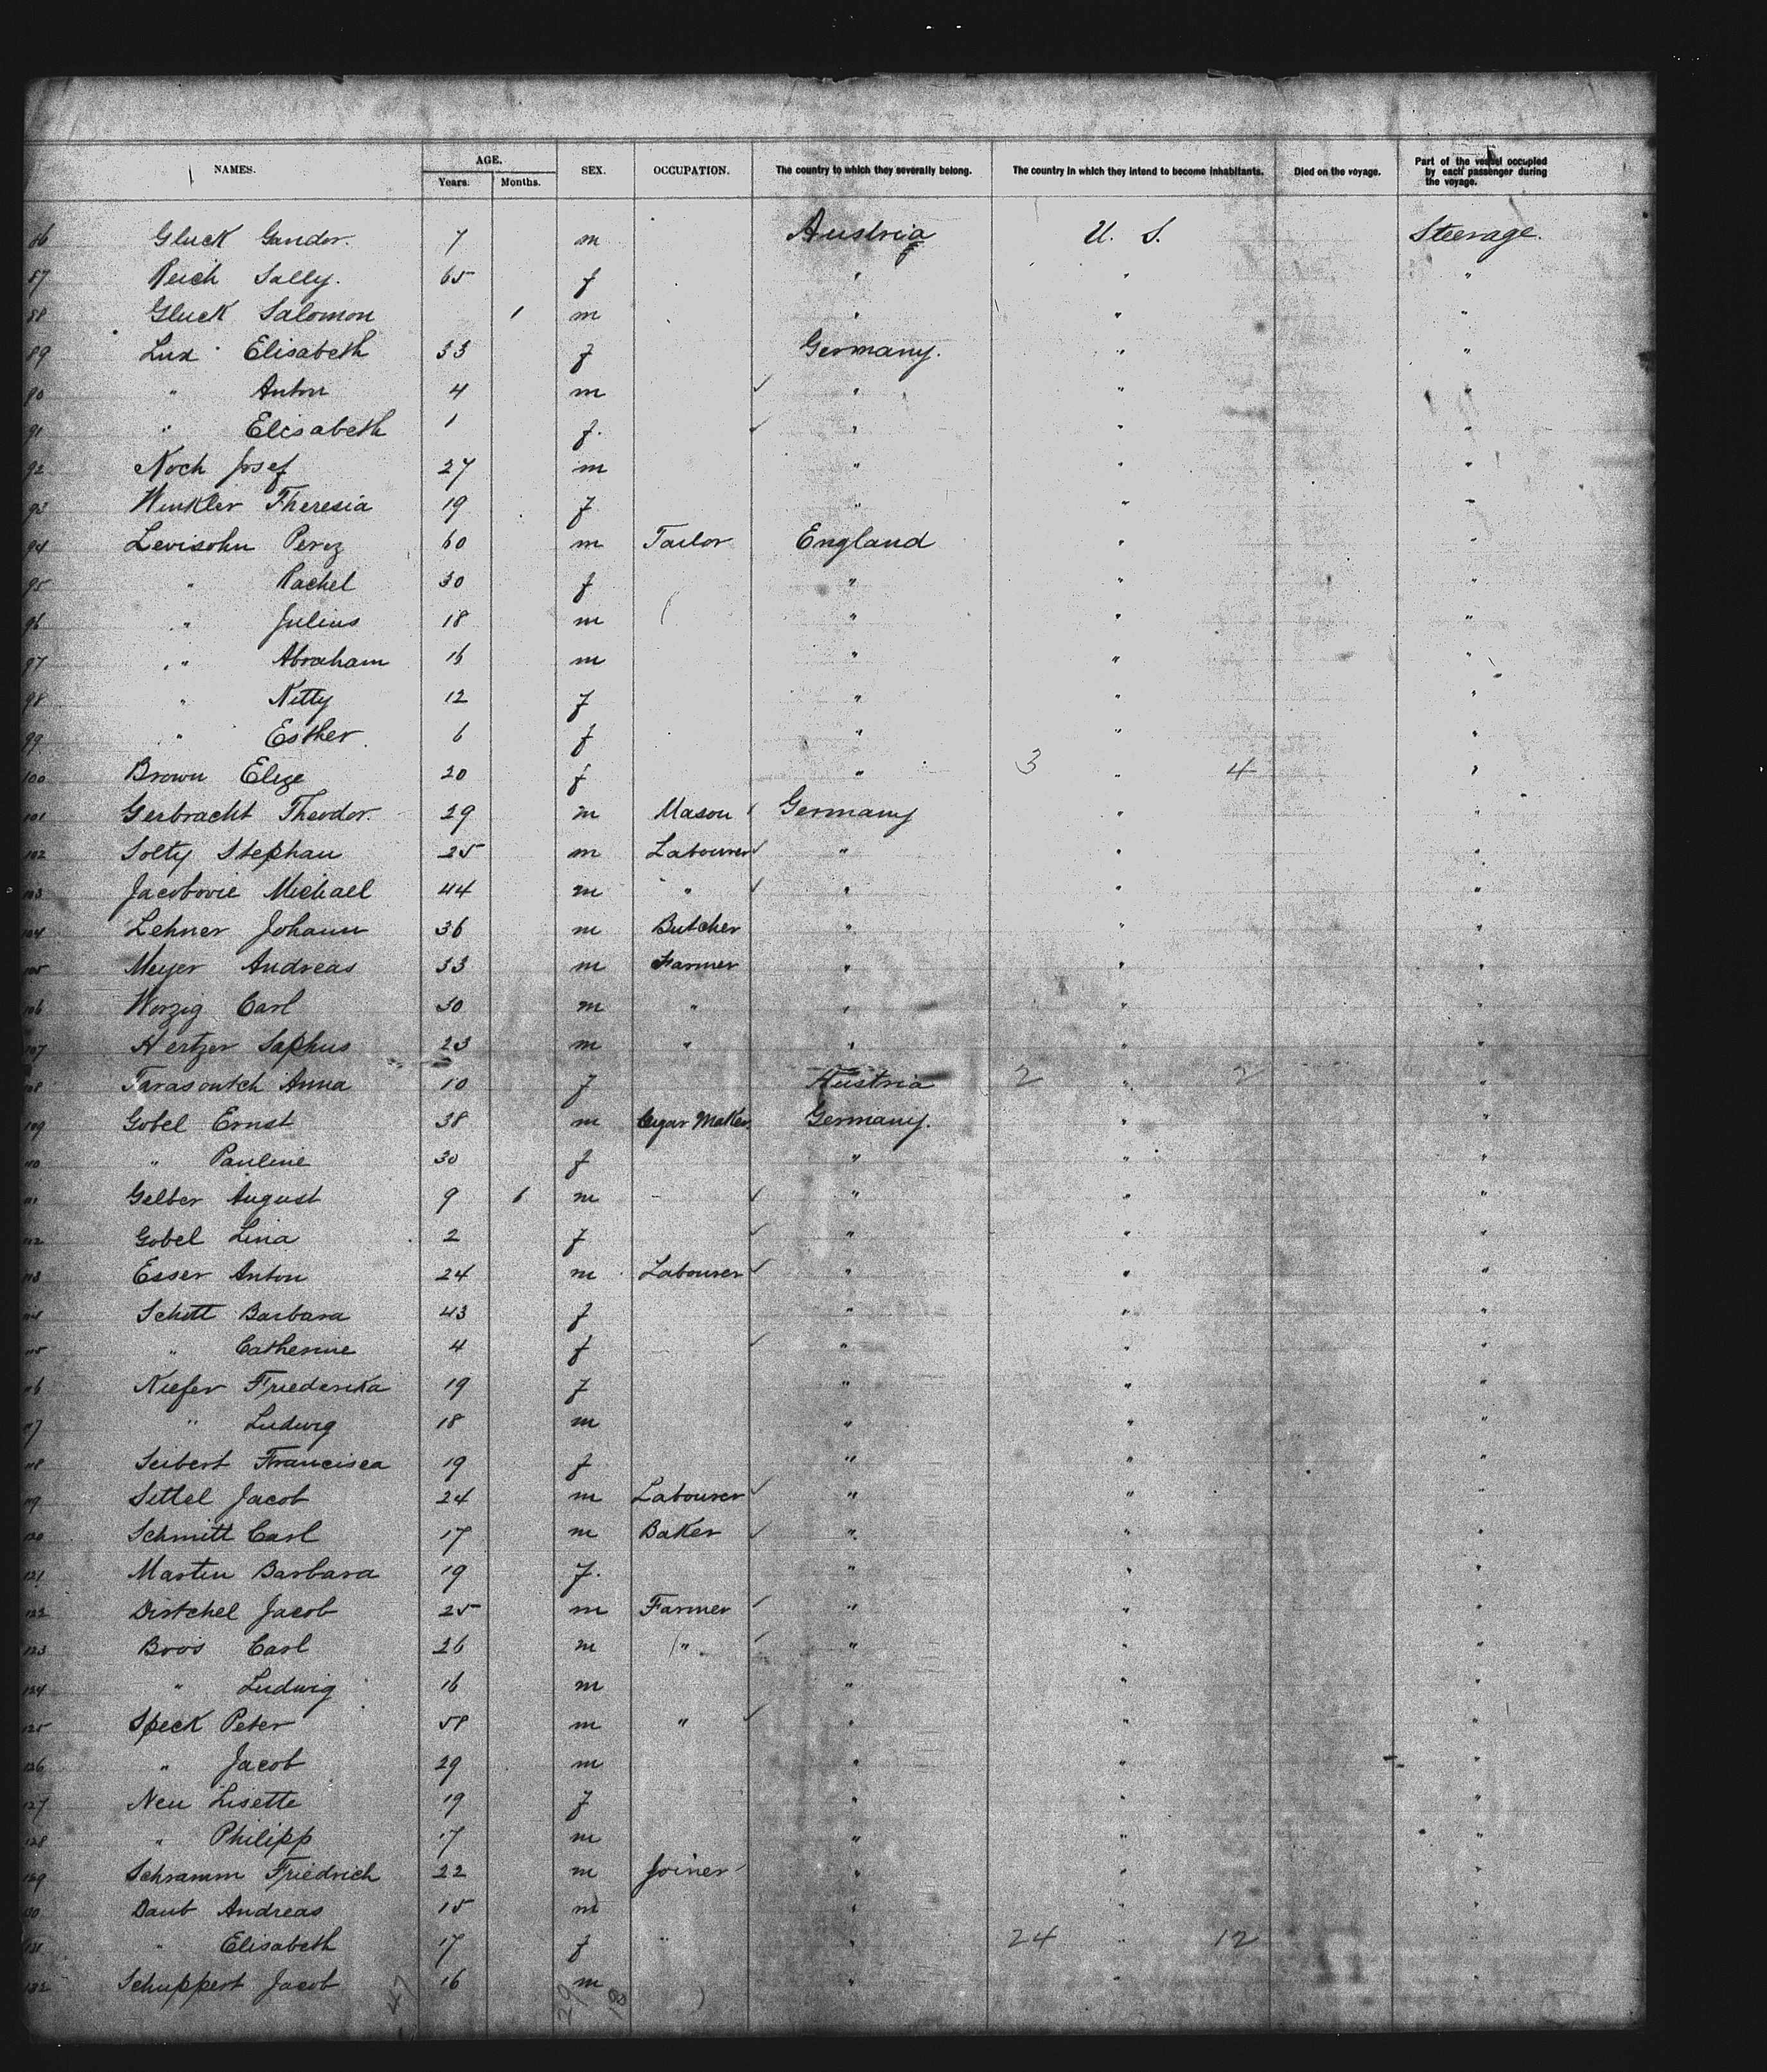 NAMES. AGE. SEX. OCCUPATION. The country to which they severally belong. The country in which they intend to become inhabitants. Died on the voyage. Part of the vessel occupied by each passenger during the voyage.
Years. Months.
86 Gluck Gandor. 7 m Austria U. S. Steerage.
87 Reich Sally. 65 f " " "
88 Gluck Salomon 1 m " " "
89 Lux Elisabeth 33 f Germany. " "
90 " Anton 4 m " " "
91 " Elisabeth 1 f. " " "
92 Koch Josef 27 m " " "
93 Winkler Theresia 19 f " " "
94 Levisohn Perez 60 m Tailor England " "
95 " Rachel 30 f " " "
96 " Julius 18 m " " "
97 " Abraham 16 m " " "
98 " Kitty 12 f " " "
99 " Esther 6 f " " "
100 Brown Elize 20 f " 3 " 4 "
101 Gerbracht Theodor. 29 m Mason Germany " "
102 Solty Stephan 25 m Labourer " " "
103 Jacobovic Michael 44 m " " " "
104 Lehner Johann 36 m Butcher " " "
105 Meyer Andreas 33 m Farmer " " "
106 Worzig Carl 30 m " " " "
107 Hertzer Saphus 23 m " " " "
108 Tarasoutch Anna 10 f Austria 2 " 2 "
109 Gobel Ernst 38 m Cigar Maker Germany. " "
110 " Pauline 30 f " " "
111 Gelber August 9 6 m " " "
112 Gobel Lina 2 f " " "
113 Esser Anton 24 m Labourer " " "
114 Schott Barbara 43 f " " "
115 " Catherine 4 f " " "
116 Kiefer Friederika 19 f " " "
117 " Ludwig 18 m " " "
118 Seibert Francisca 19 f " " "
119 Settel Jacob 24 m Labourer " " "
120 Schmitt Carl 17 m Baker " " "
121 Martin Barbara 19 f. " " "
122 Distchel Jacob 25 m Farmer " " "
123 Boos Carl 26 m " " " "
124 " Ludwig 16 m " " "
125 Speck Peter 58 m " " " "
126 " Jacob 29 m " " "
127 Neu Lisette 19 f " " "
128 " Philipp 17 m " " "
129 Schramm Friedrich 22 m Joiner " " "
130 Daub Andreas 15 m " " "
131 " Elisabeth 17 f " " 24 " 12 "
132 Schuppert Jacob 16 m " " "
47 29 18